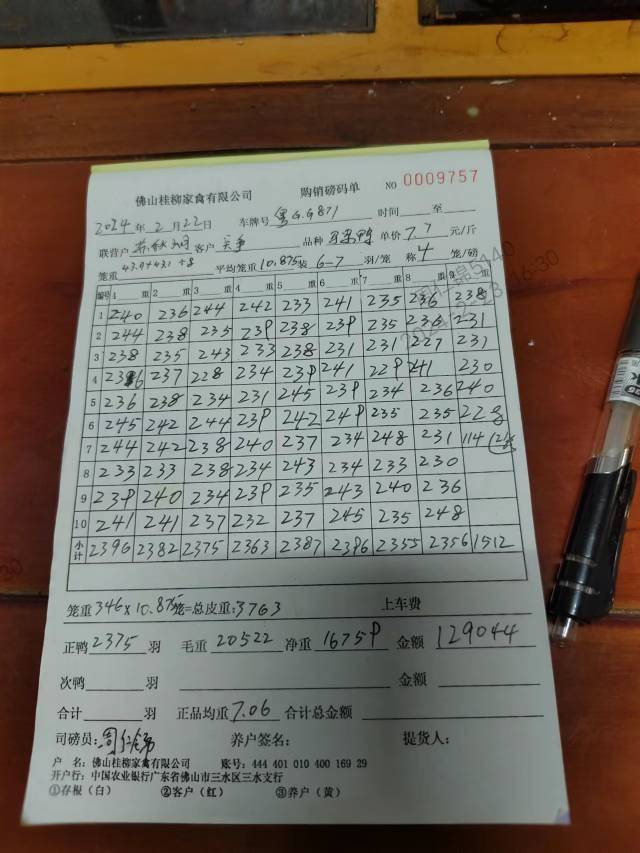 佛山桂柳家禽有限公司 购销磅码单 NO 0009757
2024年2月22日 车牌号 粤G.G871 时间 至
联营户 客户 品种 单价7.7元/斤
笼重 平均笼重10.875装6-7羽/笼 称4笼/磅
编号 1 重 2 重 3 重 4 重 5 重 6 重 7 重 8 重 9 重
1 240 236 244 242 233 241 235 236 238
2 244 238 235 239 238 239 235 236 231
3 238 235 243 233 238 231 231 227 231
4 236 237 228 234 239 241 229 241 230
5 236 238 234 231 245 239 234 236 240
6 245 242 244 239 242 249 235 235 228
7 244 242 238 240 237 234 248 231 114
8 233 233 238 234 243 234 233 230
9 239 240 234 239 235 243 240 236
10 241 241 237 232 237 245 235 248
小计 2396 2382 2375 2363 2387 2396 2355 2356 1512
笼重346×10.875笼=总皮重:3763 上车费
正鸭2375羽 毛重20522净重16759 金额129044
次鸭 羽 金额
合计 羽 正品均重7.06 合计总金额
司磅员: 养户签名: 提货人:
户 名: 佛山桂柳家禽有限公司 账号: 444 401 010 400 169 29
开户行: 中国农业银行广东省佛山市三水区三水支行
①存根(白) ②客户(红) ③养户(黄)